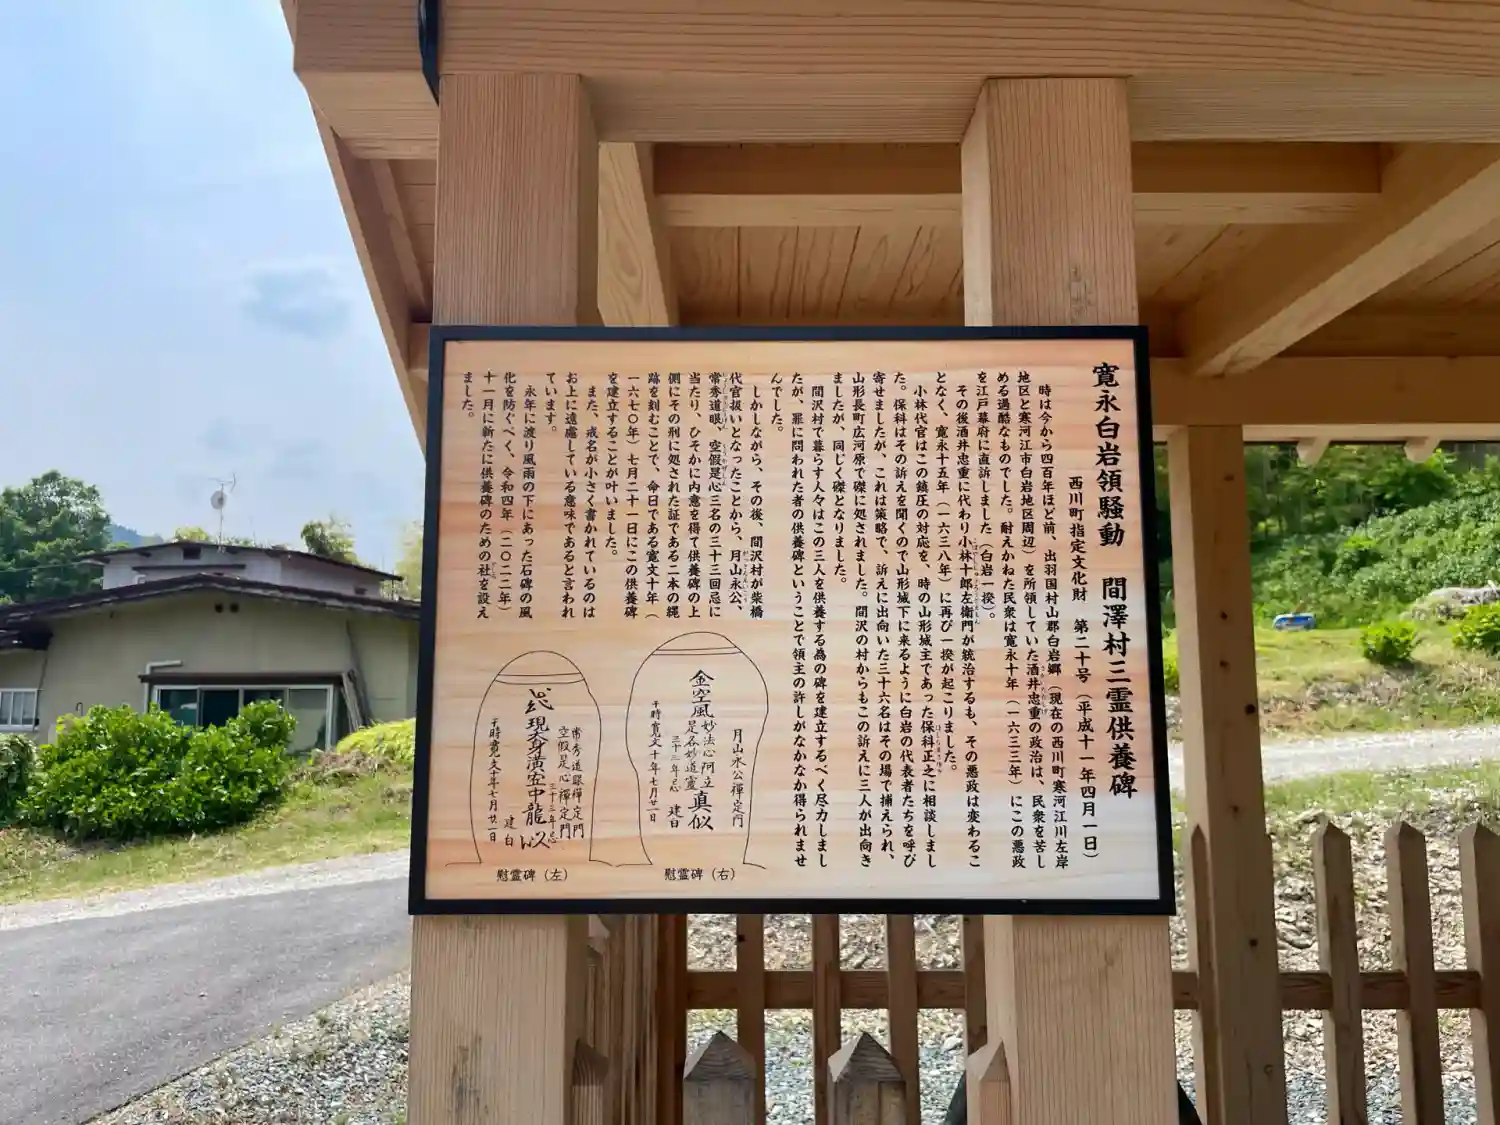 寛永白岩領騒動　間澤村三霊供養碑
西川町指定文化財　第二十号（平成十一年四月一日）
時は今から四百年ほど前、出羽国村山郡白岩郷（現在の西川町寒河江川左岸
地区と寒河江市白岩地区周辺）を所領していた酒井忠重の政治は、民衆を苦し
める過酷なものでした。耐えかねた民衆は寛永十年（一六三三年）にこの悪政
を江戸幕府に直訴しました（白岩一揆）。
その後酒井忠重に代わり小林十郎左衛門が統治するも、その悪政は変わるこ
となく、寛永十五年（一六三八年）に再び一揆が起こりました。
小林代官はこの鎮圧の対応を、時の山形城主であった保科正之に相談しまし
た。保科はその訴えを聞くので山形城下に来るように白岩の代表者たちを呼び
寄せましたが、これは策略で、訴えに出向いた三十六名はその場で捕えられ、
山形長町広河原で磔に処されました。間沢の村からもこの訴えに三人が出向き
ましたが、同じく磔となりました。
間沢村で暮らす人々はこの三人を供養する為の碑を建立するべく尽力しまし
たが、罪に問われた者の供養碑ということで領主の許しがなかなか得られませ
んでした。
しかしながら、その後、間沢村が柴橋
代官扱いとなったことから、月山永公、
常秀道眼、空假是心三名の三十三回忌に
当たり、ひそかに内意を得て供養碑の上
側にその刑に処された証である二本の縄
跡を刻むことで、今日である寛文十年（
一六七〇年）七月二十一日にこの供養碑
を建立することが叶いました。
また、戒名が小さく書かれているのは
お上に遠慮している意味であると言われ
ています。
永年に渡り風雨の下にあった石碑の風
化を防ぐべく、令和四年（二〇二二年）
十一月に新たに供養碑のための社を設え
ました。
月山永公禅定門
金空風妙法心阿立真似
是名妙道霊
三十三年忌　建白
干時寛文十年七月廿一日
慰霊碑（右）
常秀道眼禅定門
空假是心禅定門
三十三年忌
現本身潢空中龍
建白
干時寛文十年七月廿一日
慰霊碑（左）